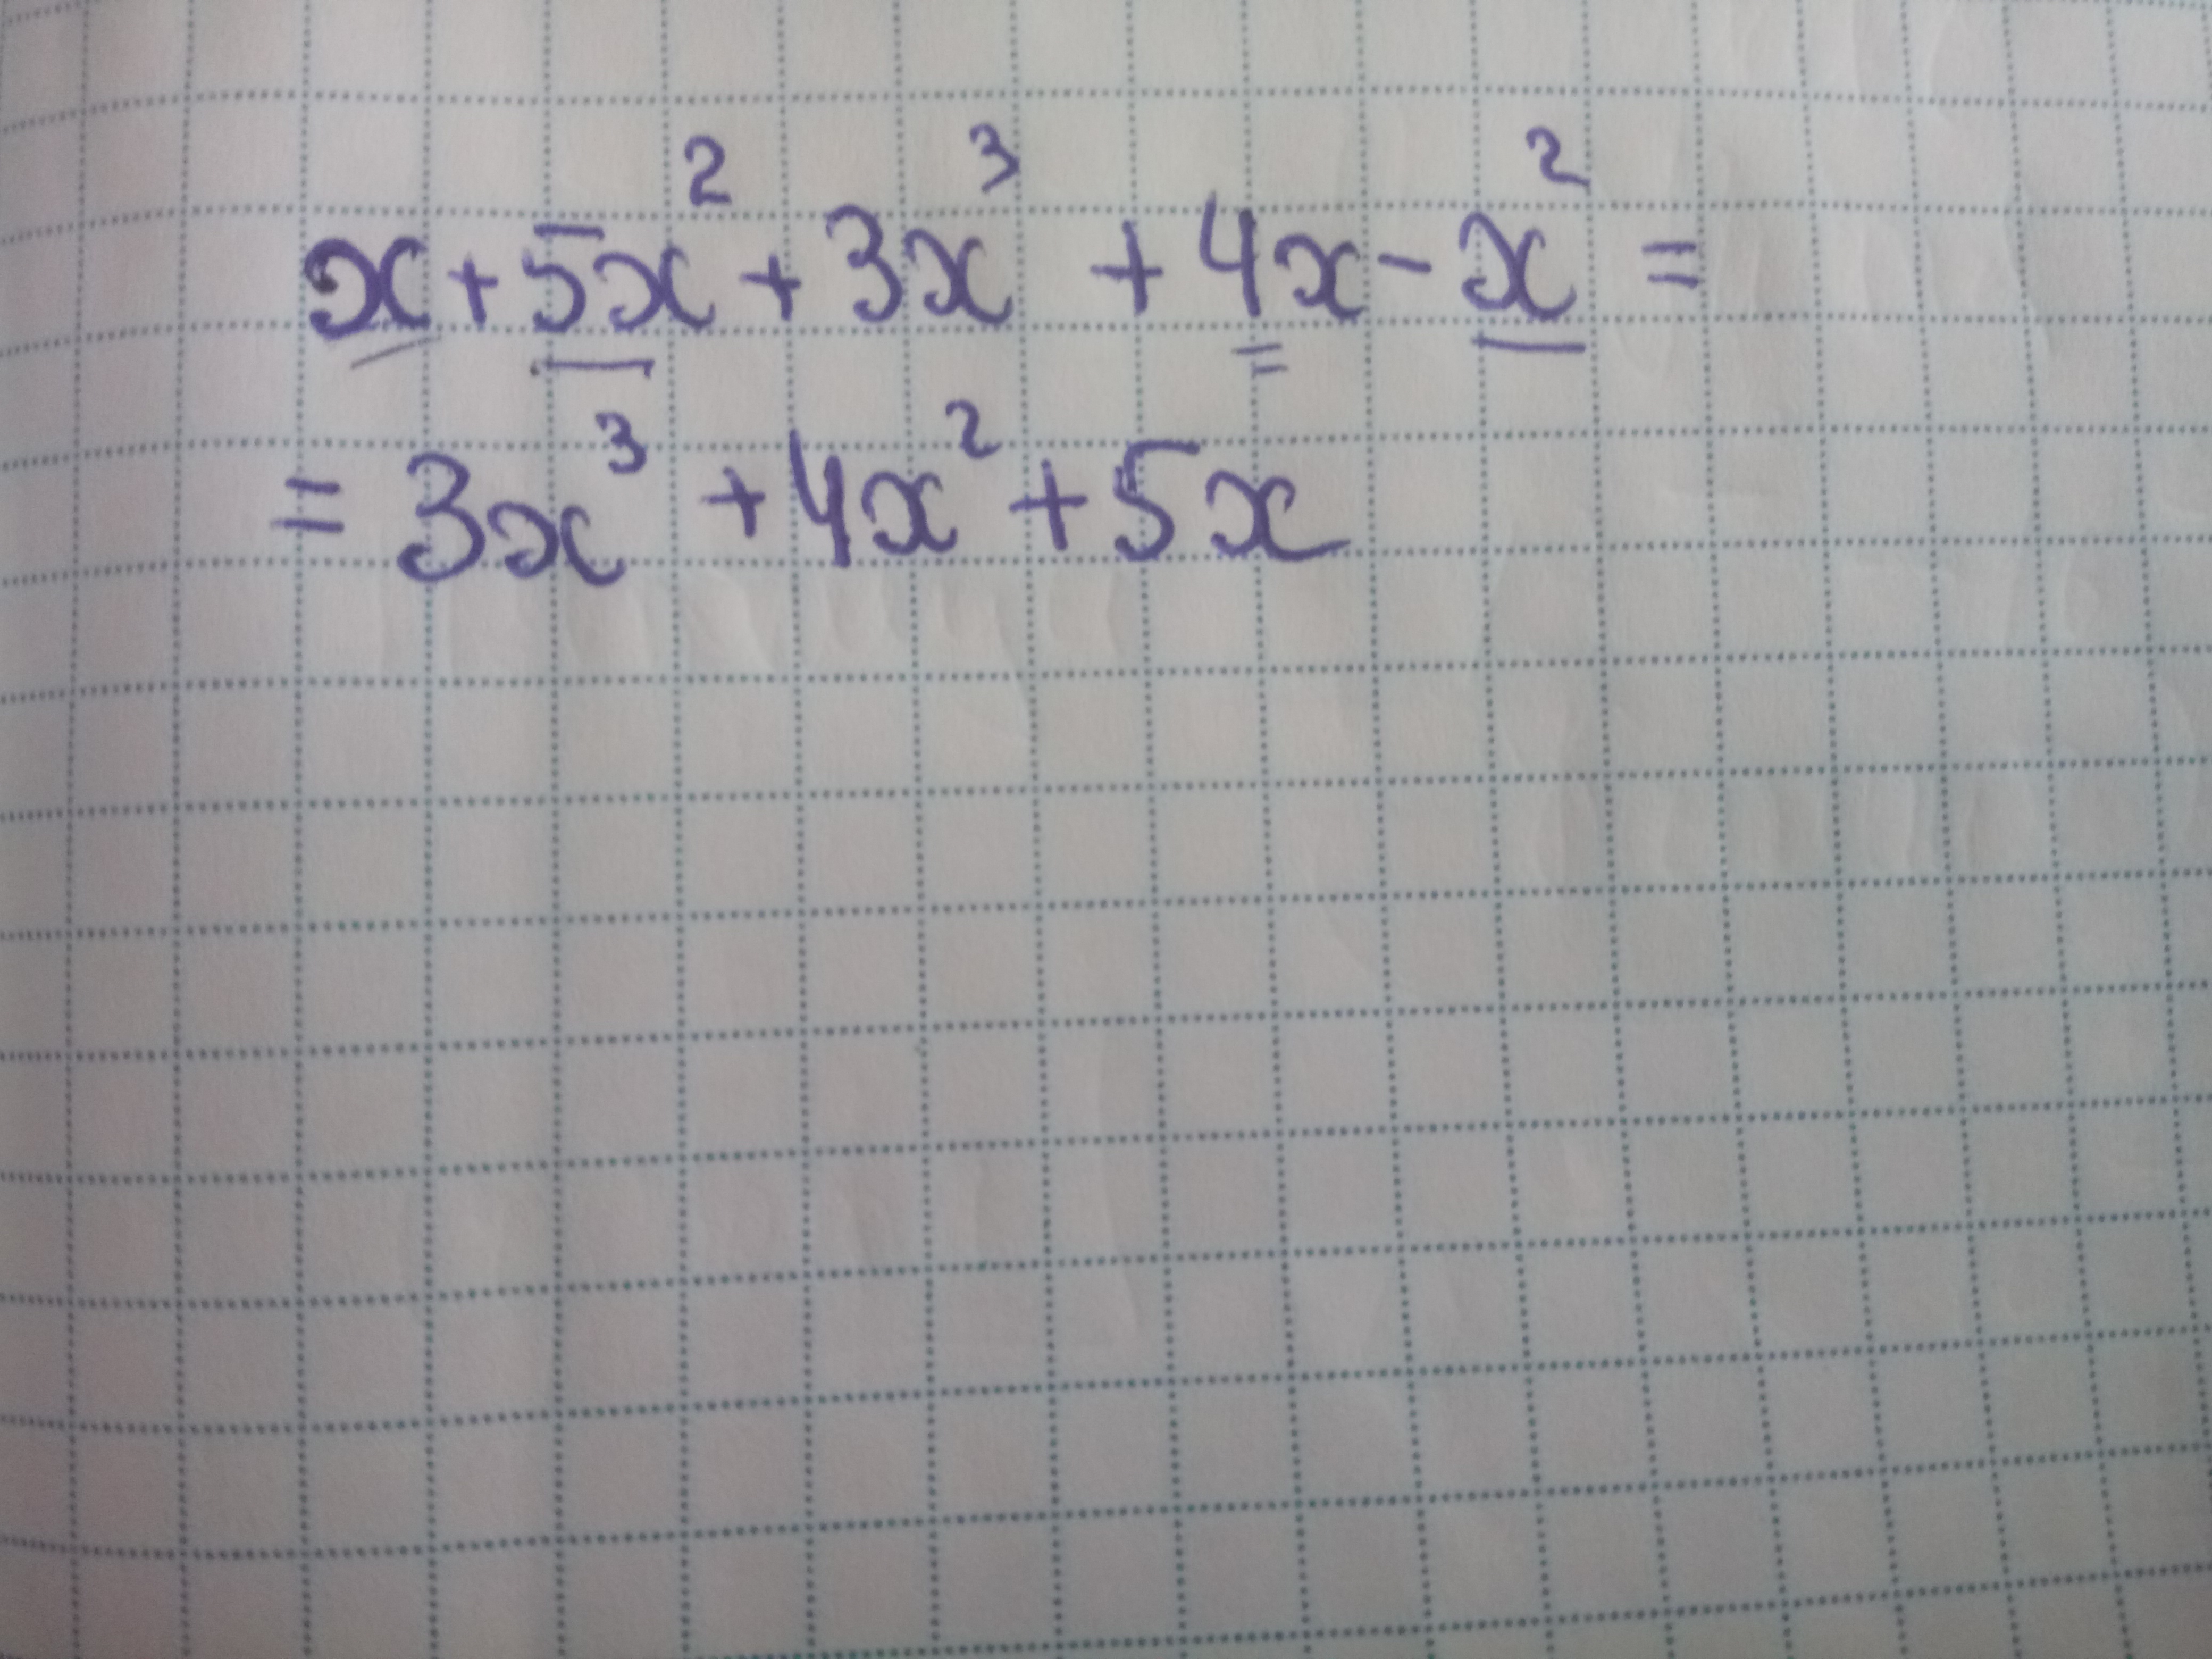 x+5x²+3x³ +4x-x² =
= 3x³ +4x²+5x